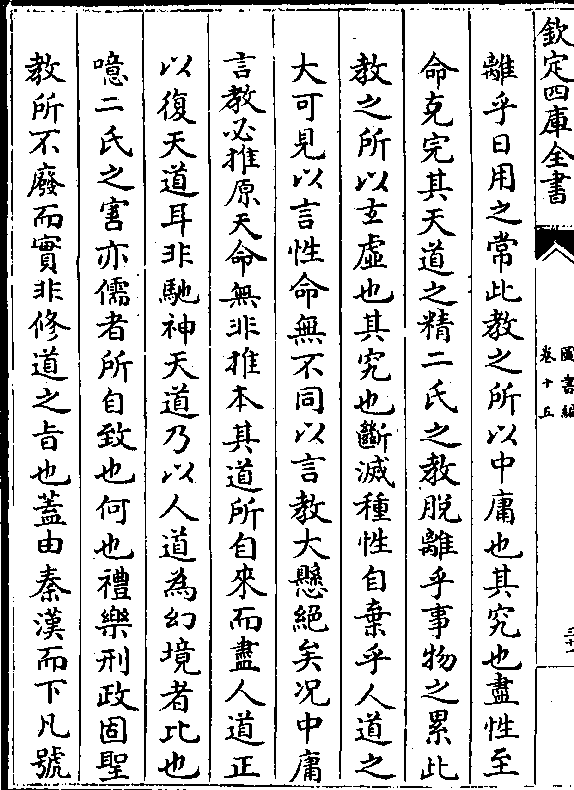 欽定四庫全書
圖書編
卷十五
離乎日用之常此教之所以中庸也其究也盡性至
命克完其天道之精二氏之教脱離乎事物之累此
教之所以玄虛也其究也斷滅種性自棄乎人道之
大可見以言性命無不同以言教大懸絕矣况中庸
言教必推原天命無非推本其道所自來而盡人道正
以復天道耳非馳神天道乃以人道為幻境者比也
噫二氏之害亦儒者所自致也何也禮樂刑政固聖
教所不廢而實非修道之旨也蓋由秦漢而下凡號